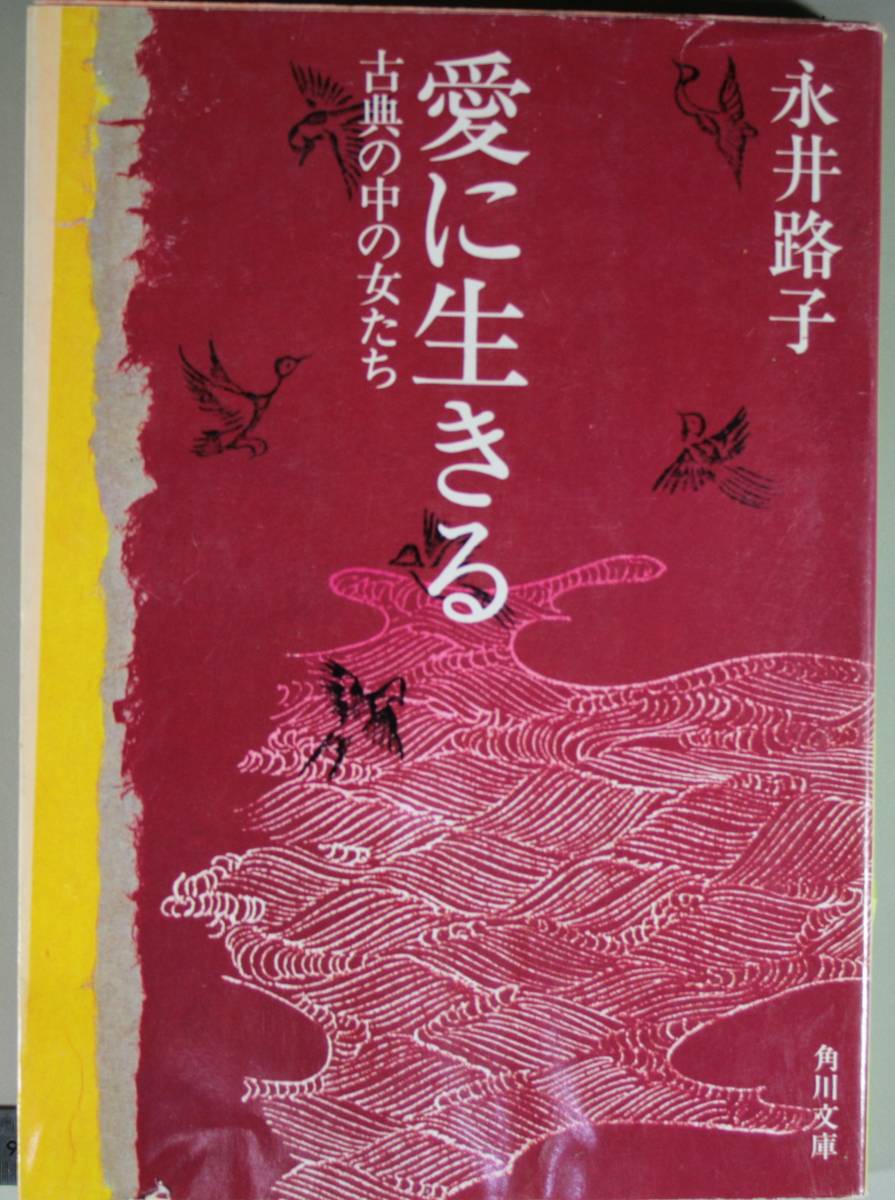 永井路子
愛に生きる
古典の中の女たち
角川文庫
9